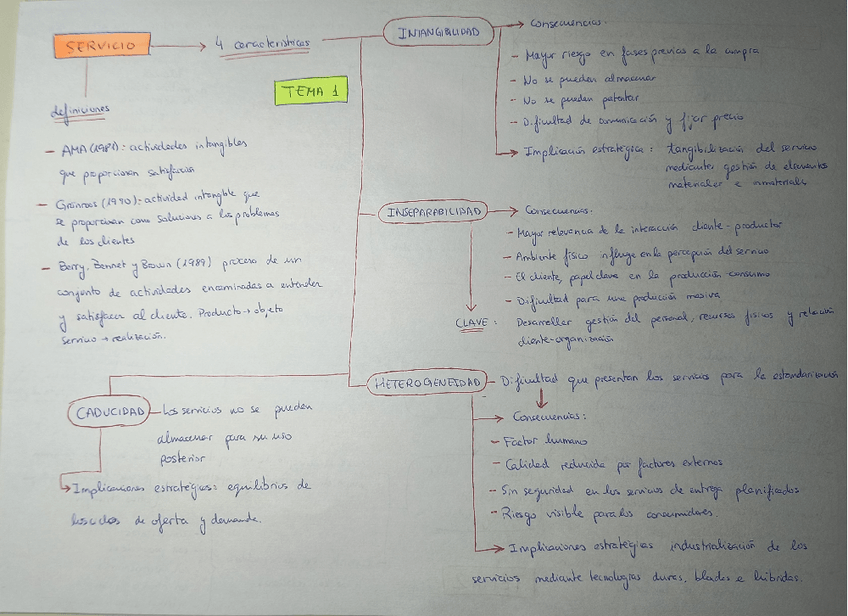 SERVICIO
4 características
TEMA 1
definiciones
- AMA (1981): actividades intangibles
que proporcionan satisfacción
- Grönroos (1990): actividad intangible que
se proporcionan como soluciones a los problemas
de los clientes
- Berry, Bennet y Brown (1989) proceso de un
conjunto de actividades encaminadas a entender
y satisfacer al cliente. Producto → objeto
servicio → realización.
INTANGIBILIDAD
Consecuencias.
- Mayor riesgo en fases previas a la compra
- No se pueden almacenar
- No se pueden patentar
- Dificultad de comunicación y fijar precio
Implicación estratégica: tangibilización del servicio
mediante gestión de elementos
materiales e inmateriales
INSEPARABILIDAD
Consecuencias.
- Mayor relevancia de la interacción cliente-productor
- Ambiente físico influye en la percepción del servicio
- El cliente, papel clave en la producción consumo
- Dificultad para una producción masiva
CLAVE: Desarrollar gestión del personal, recursos físicos y relación
cliente-organización
HETEROGENEIDAD - Dificultad que presentan los servicios para la estandarización
Consecuencias:
- Factor humano
- Calidad reducida por factores externos
- Sin seguridad en los servicios de entrega planificados
- Riesgo visible para los consumidores
Implicaciones estratégicas industrialización de los
servicios mediante tecnologías duras, blandas e híbridas.
CADUCIDAD - Los servicios no se pueden
almacenar para su uso
posterior
Implicaciones estratégicas: equilibrios de
los ciclos de oferta y demanda.